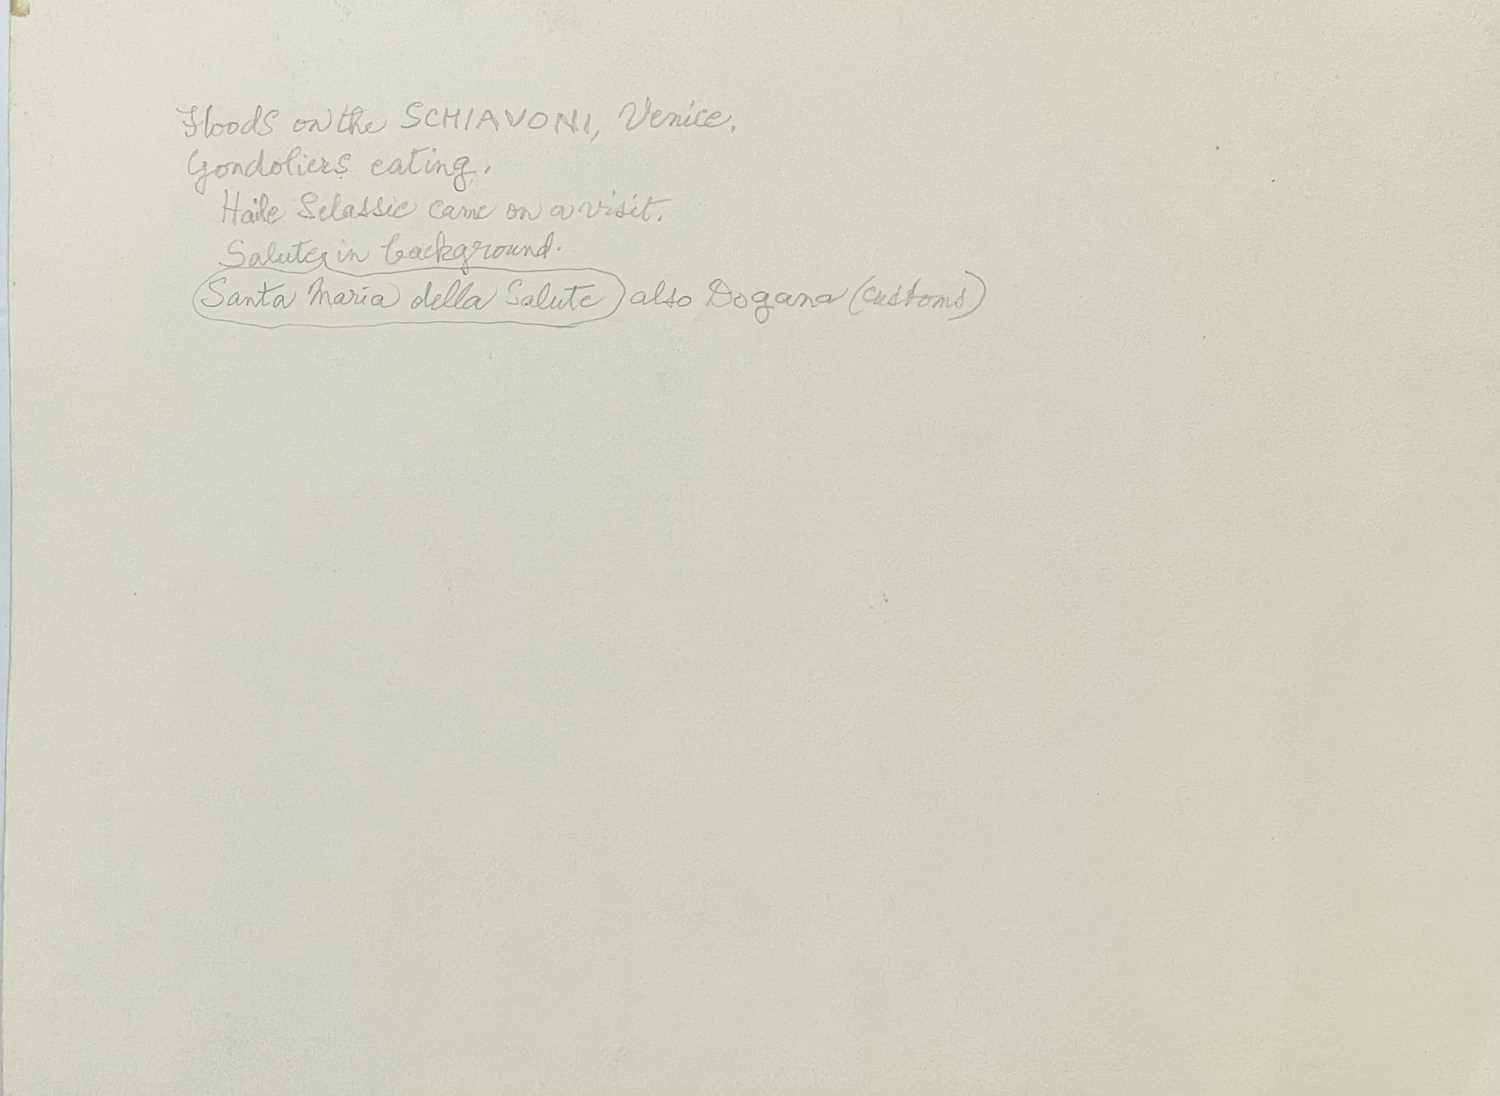 Floods on the SCHIAVONI, Venice.
Gondoliers eating.
Haile Selassie came on a visit.
Salute in background.
Santa Maria della Salute also Dogana (customs)